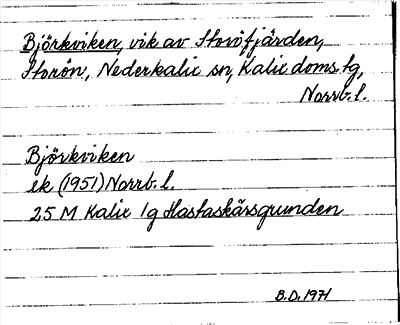 Björkviken, vik av Storöfjärden,
Storön, Nederkalix sn, Kalix doms.lg,
Norrb. l.
Björkviken
ek (1951) Norrb. l.
25 M Kalix 1g Hastaskärsgrunden
B.D. 1971